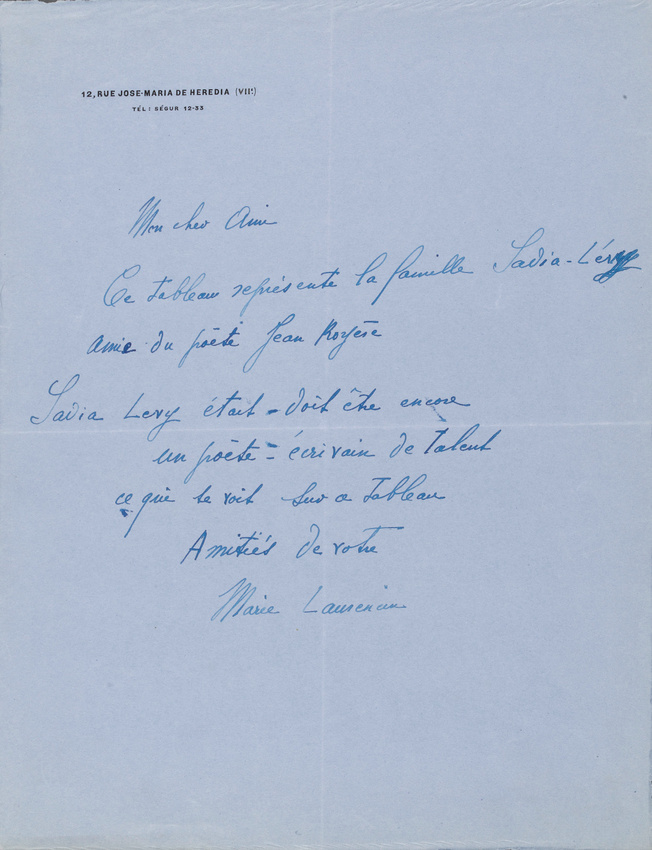 12, RUE JOSE-MARIA DE HEREDIA (VIIE)
TÉL : SÉGUR 12-33
Mon cher Ami
Ce tableau représente la famille Sadia-Lévy
amie du poète Jean Royère
Sadia Levy était - doit être encore
un poète - écrivain de talent
ce qui se voit sur ce tableau
Amitiés de votre
Marie Laurencin